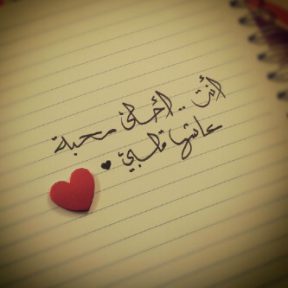 أنت .. أحلى محبة
عاشها قلبي